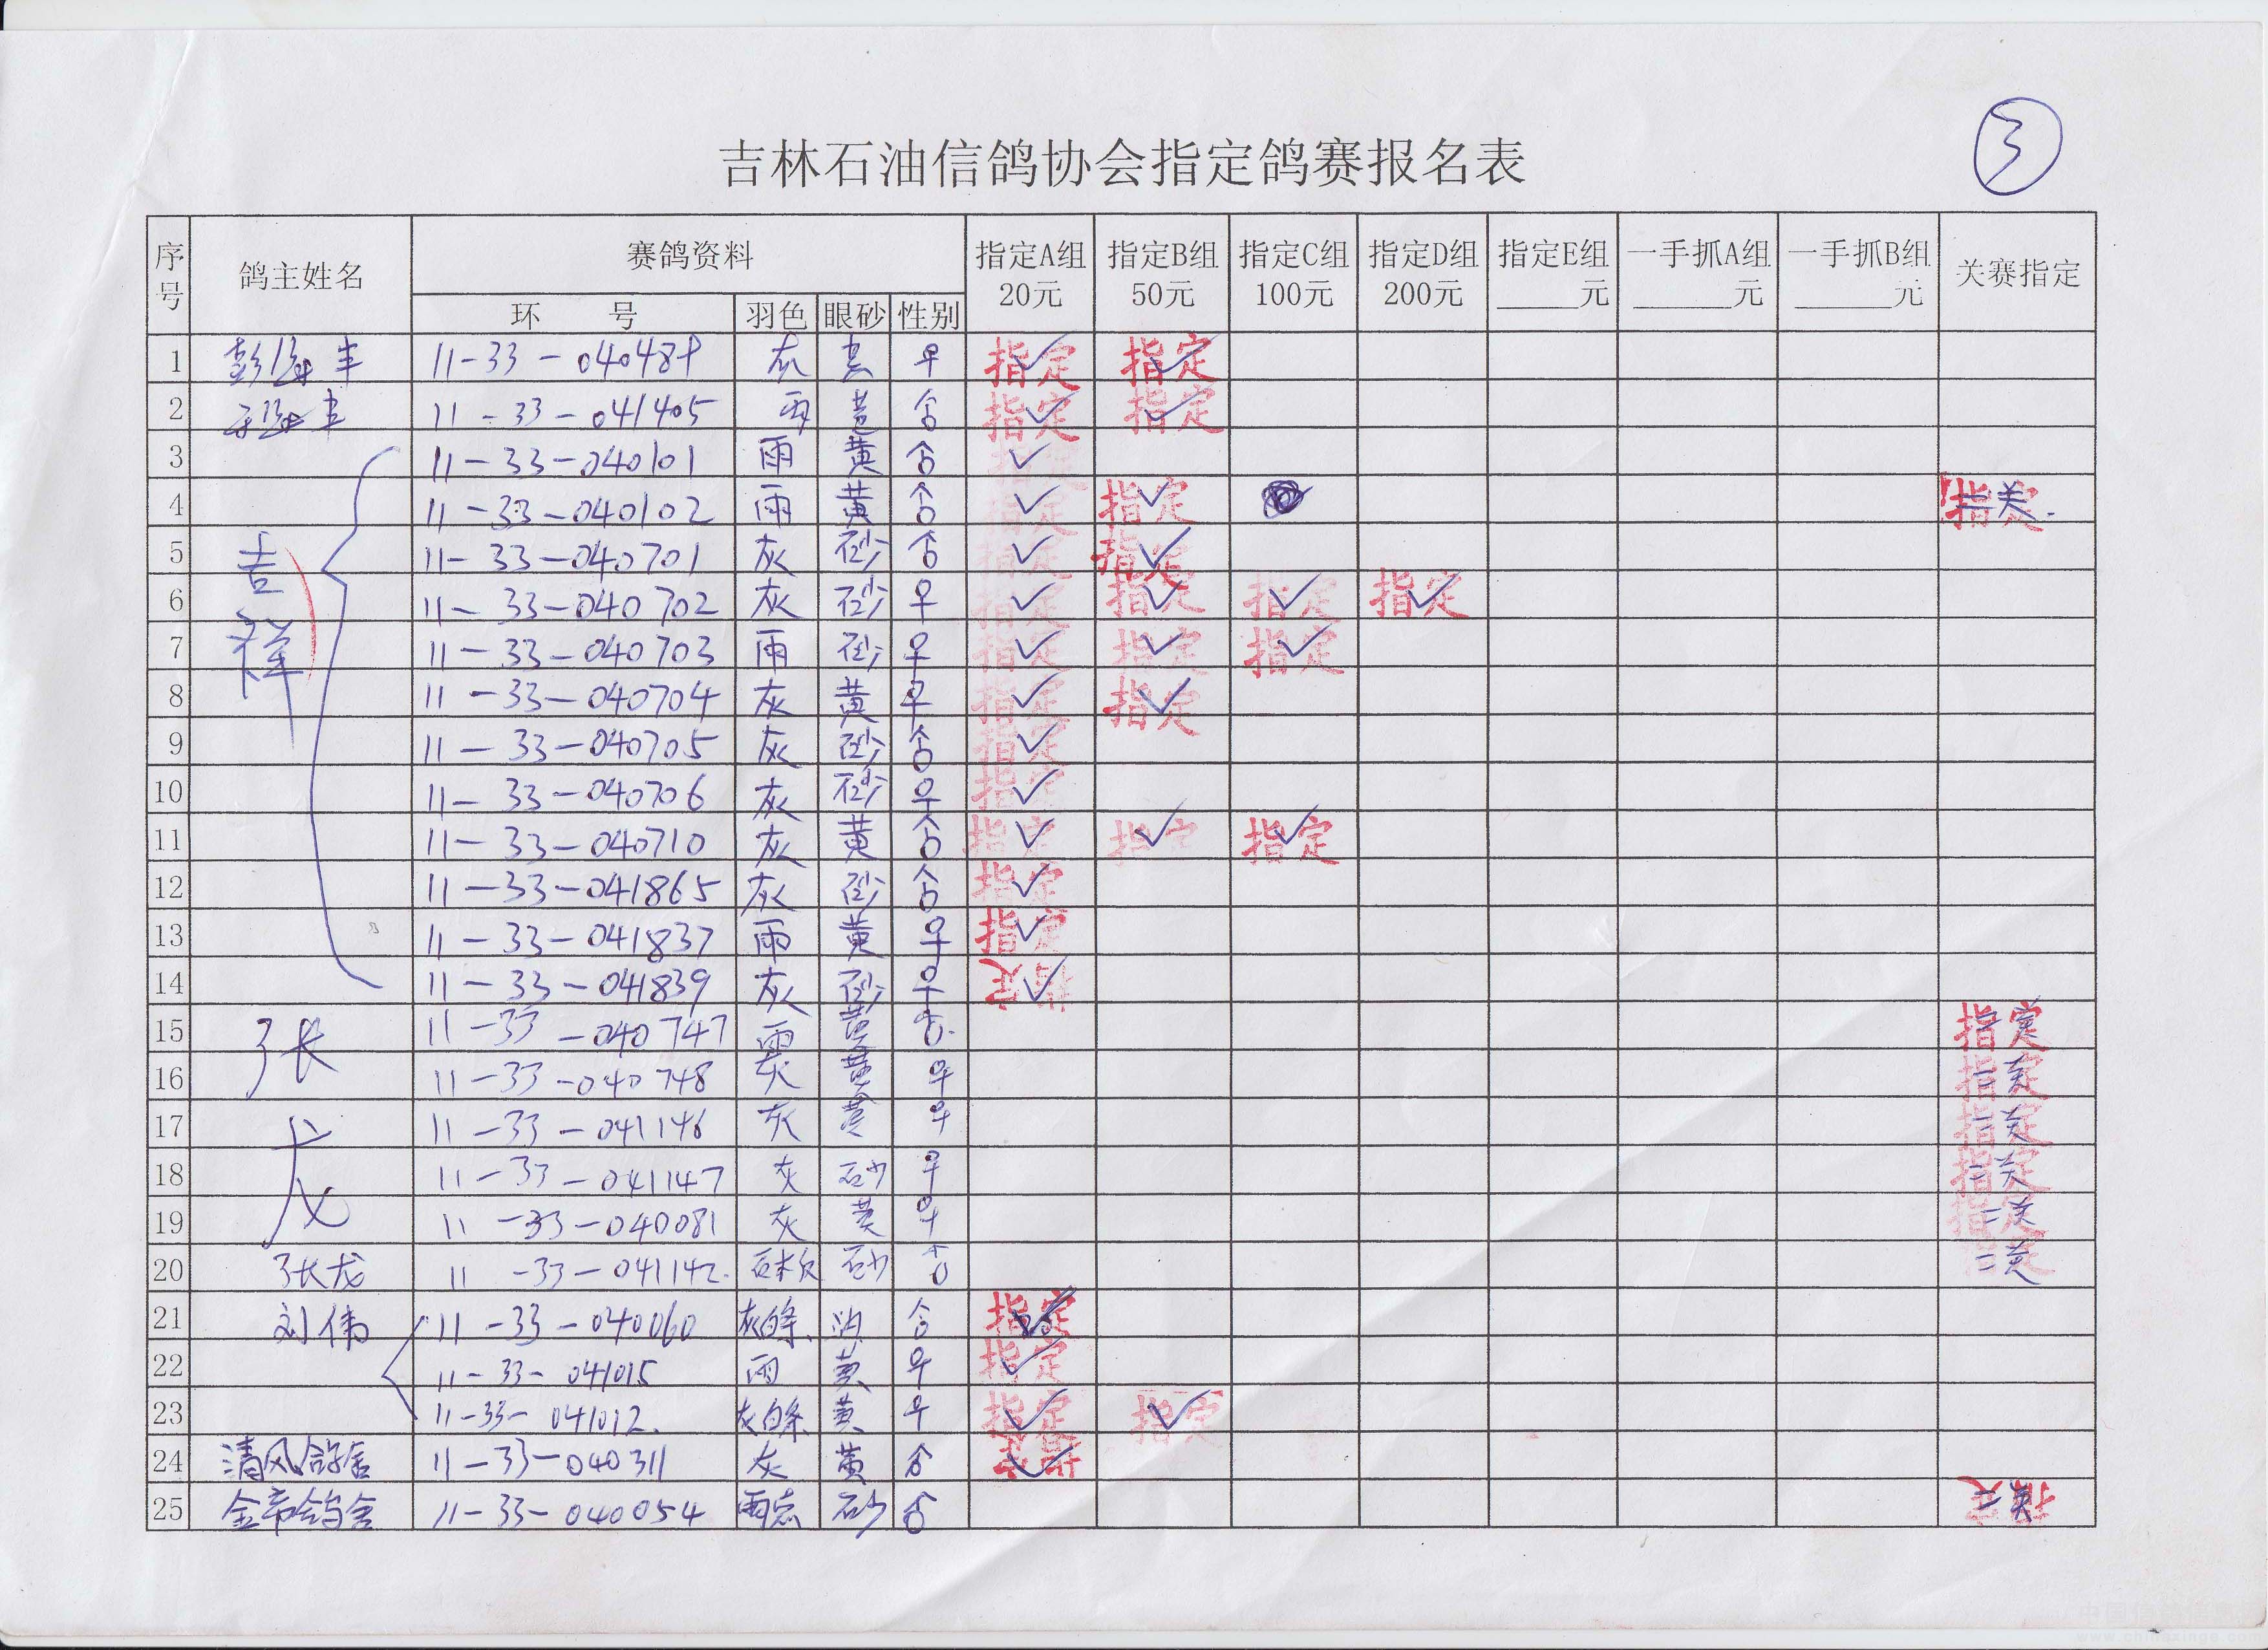 ③
吉林石油信鸽协会指定鸽赛报名表
序号 鸽主姓名 赛鸽资料 指定A组 20元 指定B组 50元 指定C组 100元 指定D组 200元 指定E组 ____元 一手抓A组 ____元 一手抓B组 ____元 关赛指定
环 号 羽色 眼砂 性别
1 彭海丰 11-33-040484 灰 ♀ 指定✓ 指定✓
2 11-33-041405 雨 黄 ♂ 指定✓ 指定✓
3 11-33-040101 雨 黄 ♂ ✓
4 11-33-040102 雨 黄 ♂ ✓ 指定✓ 指定 二关.
5 11-33-040701 灰 砂 ♂ ✓ 指定✓
吉祥
6 11-33-040702 灰 砂 ♀ 指定✓ 指定✓ 指定✓ 指定✓
7 11-33-040703 雨 砂 ♀ 指定✓ 指定✓ 指定✓
8 11-33-040704 灰 黄 ♀ 指定✓ 指定✓
9 11-33-040705 灰 砂 ♂ 指定✓
10 11-33-040706 灰 砂 ♀ 指定✓
11 11-33-040710 灰 黄 ♂ 指定✓ 指定✓ 指定✓
12 11-33-041865 灰 砂 ♂ 指定✓
13 11-33-041837 雨 黄 ♀ 指定✓
14 11-33-041839 灰 砂 ♀ 指定✓
张龙
15 11-33-040747 雨 黄 ♂ 指定 二关
16 11-33-040748 灰 黄 ♀ 指定 二关
17 11-33-041146 灰 黄 ♀ 指定 二关
18 11-33-041147 灰 砂 ♀ 指定 二关
19 11-33-040081 灰 黄 ♀ 指定 二关
20 张龙 11-33-041142. 砂 ♂ 指定 二关
21 刘伟 11-33-040060 灰白条 ♂ 指定✓
22 11-33-041015 雨 黄 ♀ 指定✓
23 11-33-041012. 灰白条 黄 ♀ 指定✓ 指定✓
24 清风鸽舍 11-33-040311 灰 黄 ♂ 指定✓
25 金帝鸽舍 11-33-040054 砂 ♂ 指定 二关